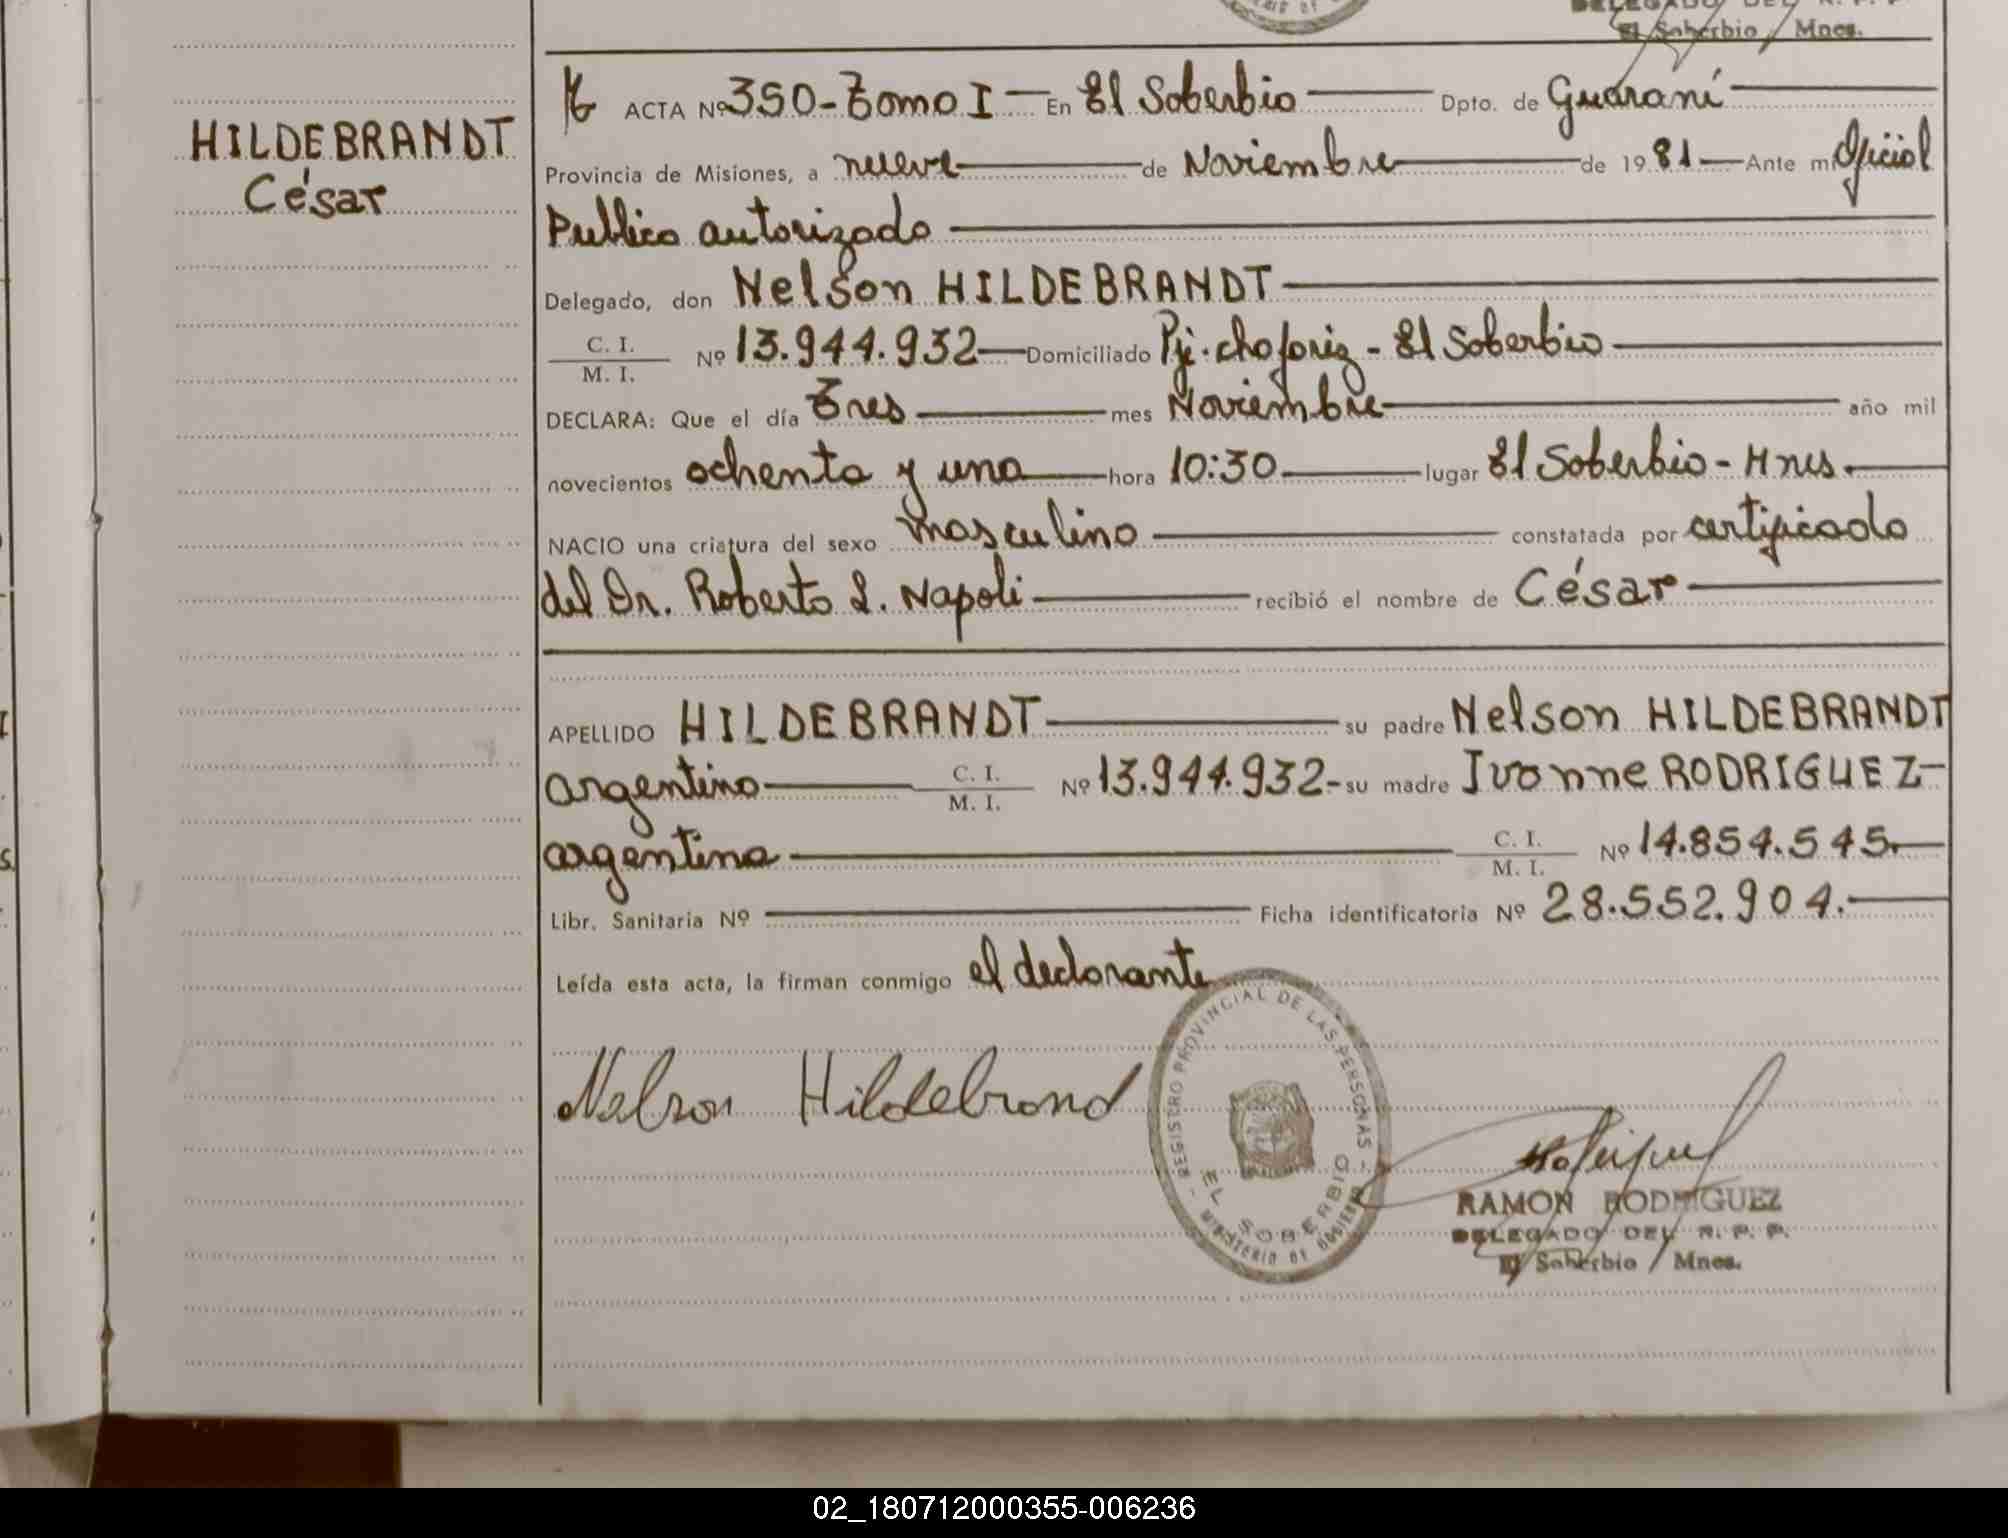 DELEGADO DEL R. P. P
El Soberbio / Mnes.
HILDEBRANDT
César
ACTA Nº 350 - Tomo I — En El Soberbio — Dpto. de Guaraní —
Provincia de Misiones, a nueve — de Noviembre — de 1981 — Ante mi Oficial
Publico autorizado —
Delegado, don Nelson HILDEBRANDT —
C. I. / M. I. Nº 13.944.932 — Domiciliado - El Soberbio —
DECLARA: Que el día Tres — mes Noviembre — año mil
novecientos ochenta y uno — hora 10:30 — lugar El Soberbio - Mnes. —
NACIO una criatura del sexo masculino — constatada por certificado
del Dr. Roberto L. Napoli — recibió el nombre de César —
APELLIDO HILDEBRANDT — su padre Nelson HILDEBRANDT
argentino — C. I. / M. I. Nº 13.944.932 - su madre Ivonne RODRIGUEZ —
argentina — C. I. / M. I. Nº 14.854.545. —
Libr. Sanitaria Nº — Ficha identificatoria Nº 28.552.904. —
Leída esta acta, la firman conmigo el declarante
Nelson Hildebrand
REGISTRO PROVINCIAL DE LAS PERSONAS - MINISTERIO DE GOBIERNO -
EL SOBERBIO
RAMON RODRIGUEZ
DELEGADO DEL R. P. P.
El Soberbio / Mnes.
02_180712000355-006236